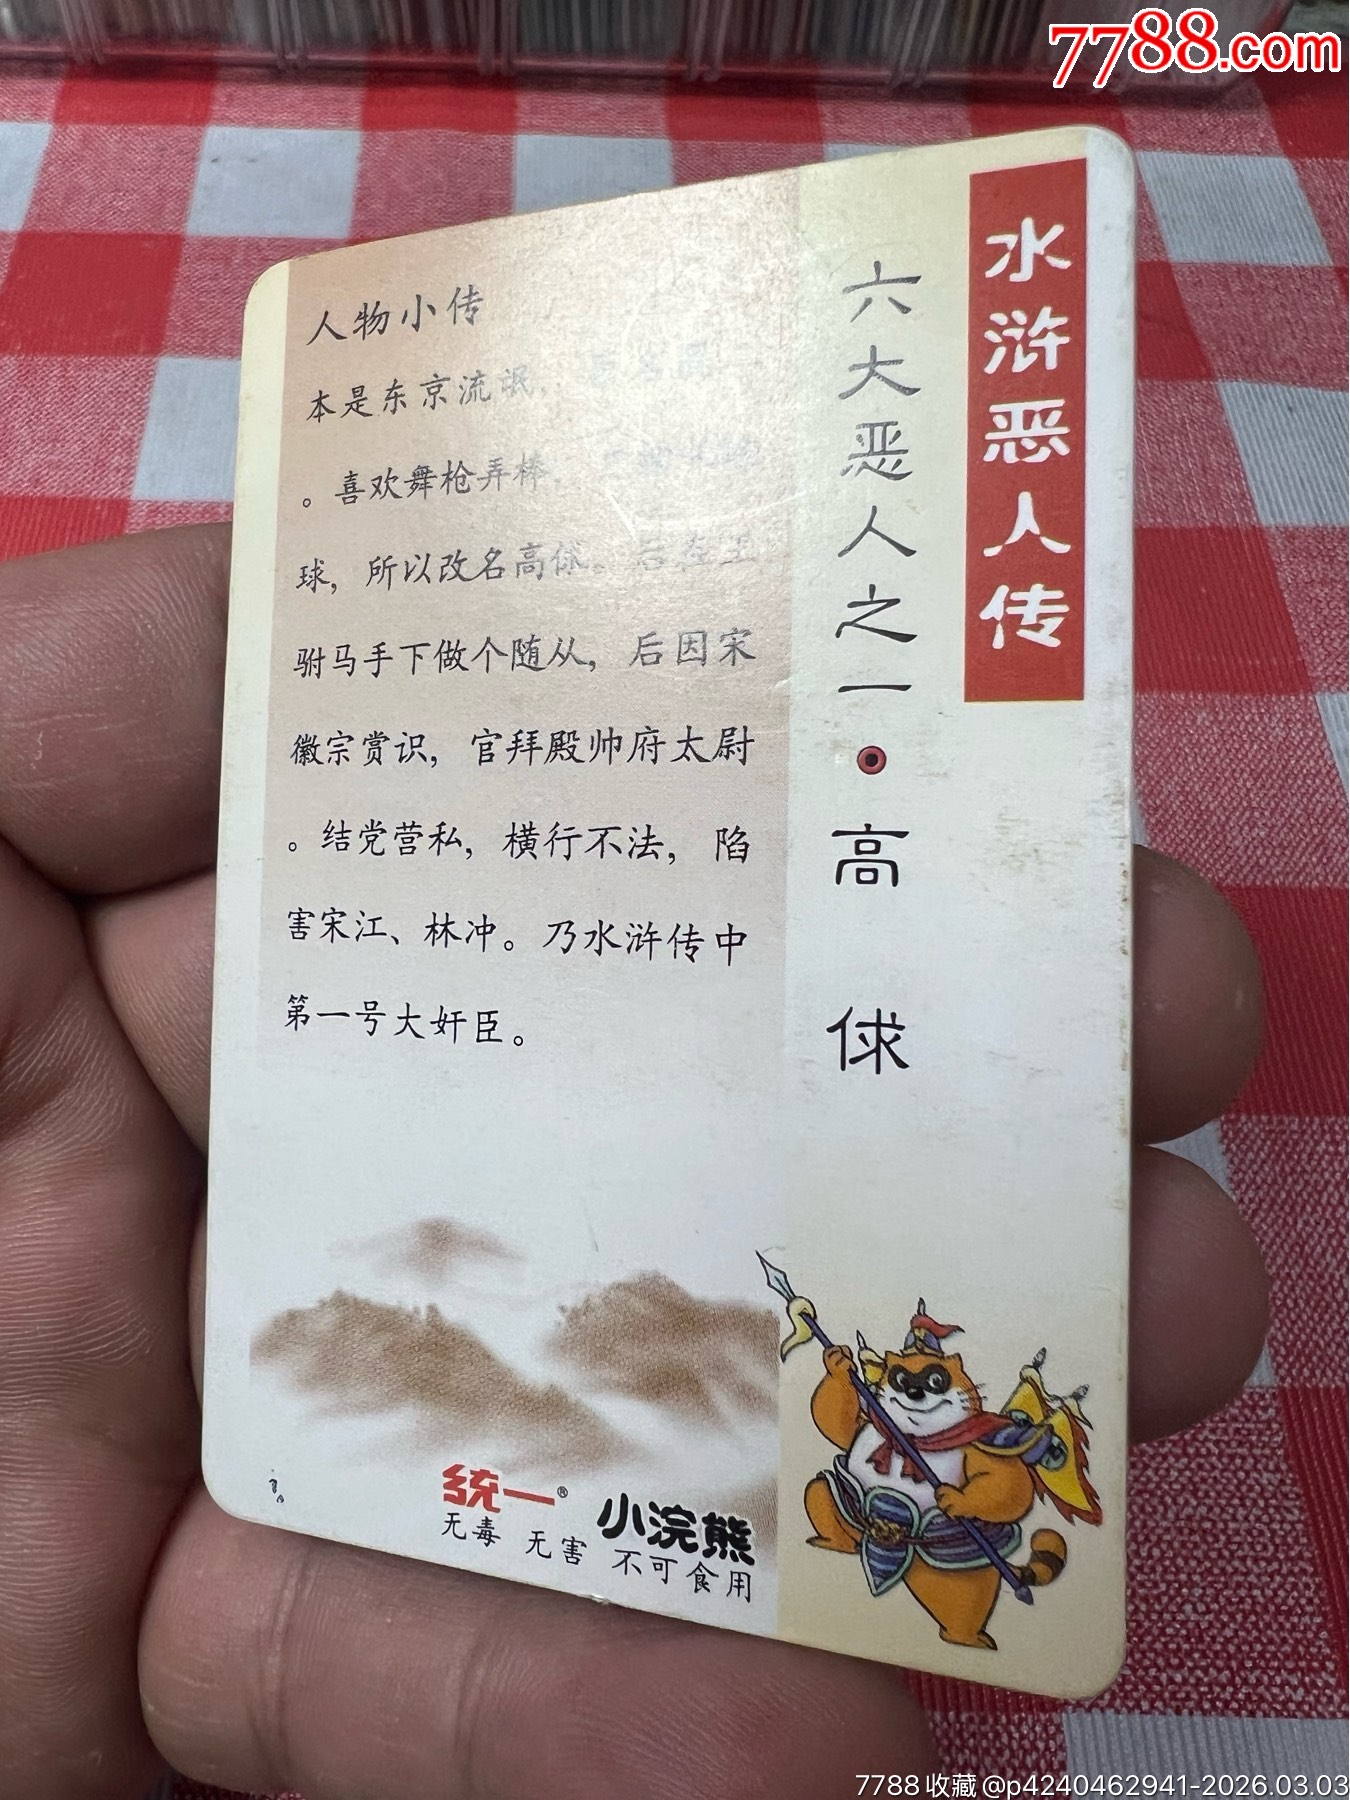 7788.com
水浒恶人传
六大恶人之一·高俅
人物小传
本是东京流氓,
。喜欢舞枪弄棒,
球,所以改名高俅。后在王
驸马手下做个随从,后因宋
徽宗赏识,官拜殿帅府太尉
。结党营私,横行不法,陷
害宋江、林冲。乃水浒传中
第一号大奸臣。
统一® 小浣熊
无毒 无害 不可食用
7788收藏@p4240462941-2026.03.03